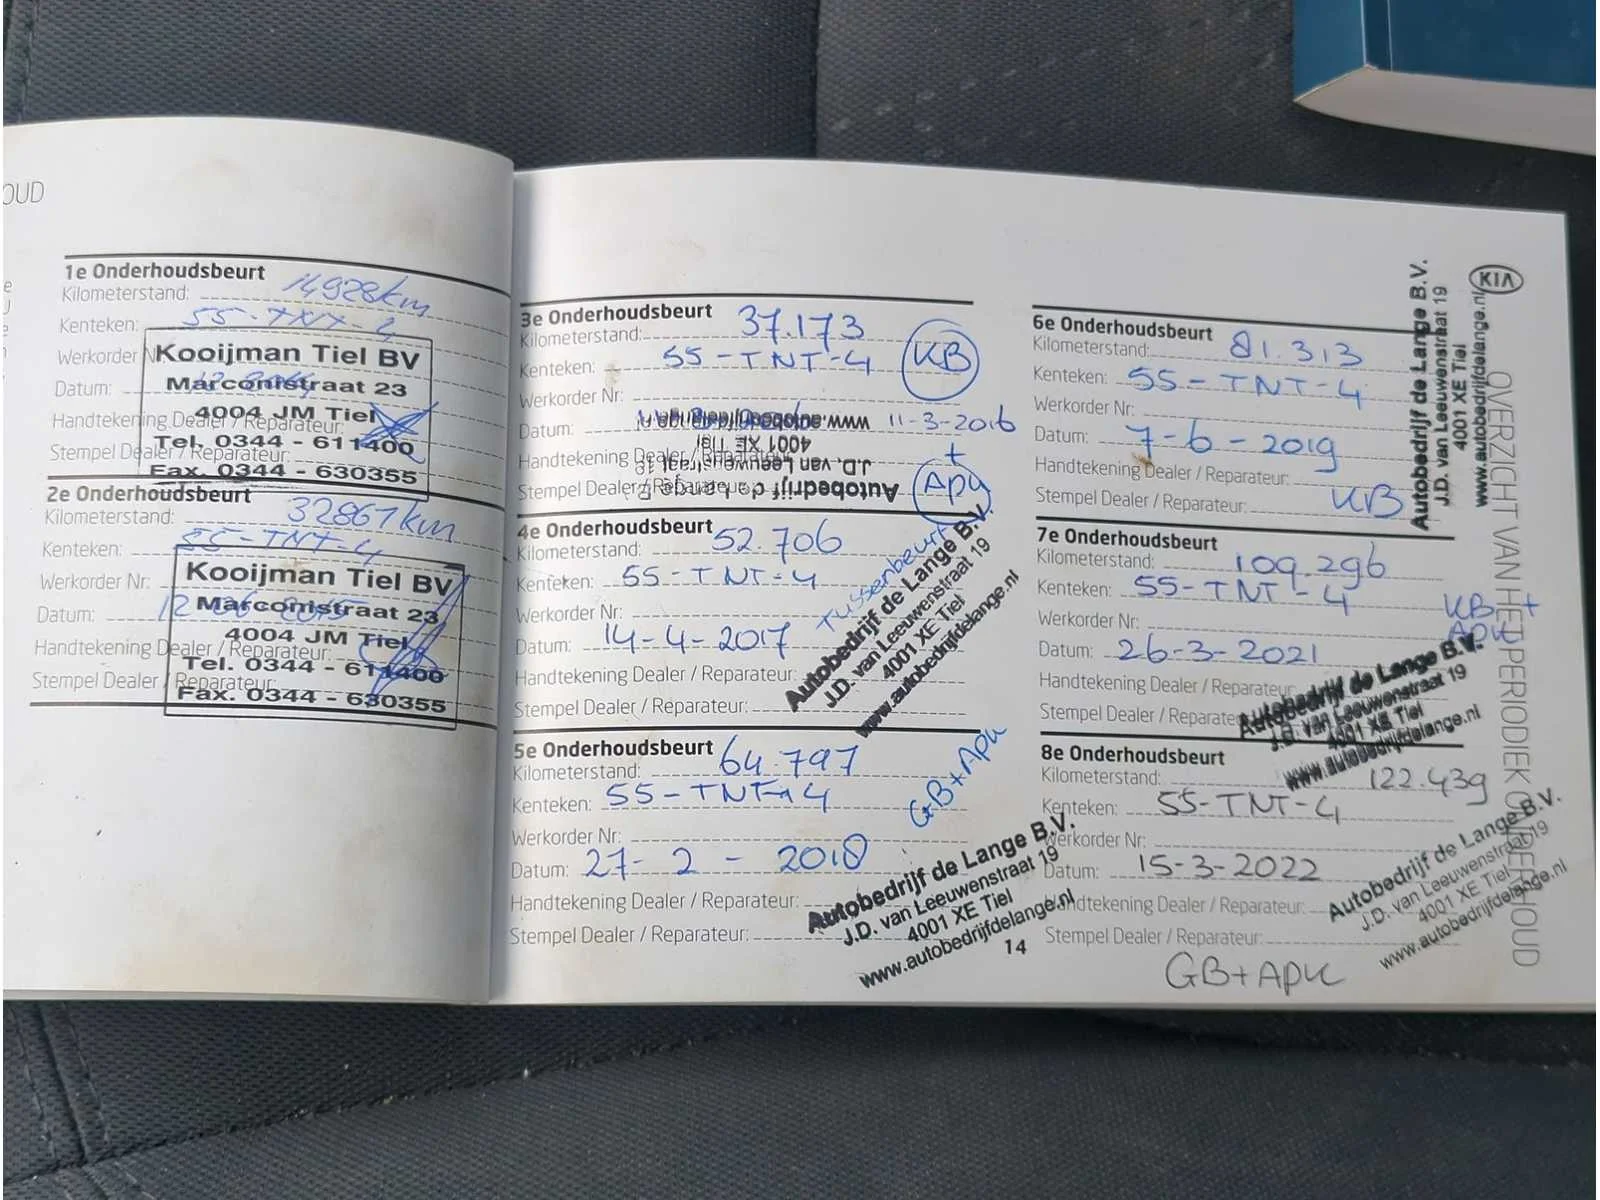 OUD
1e Onderhoudsbeurt
Kilometerstand: 14928km
Kenteken:
Werkorder
Datum:
Handtekening Dealer / Reparateur:
Stempel Dealer / Reparateur:
Kooijman Tiel BV
Marconistraat 23
4004 JM Tiel
Tel. 0344 - 611400
Fax. 0344 - 630355
2e Onderhoudsbeurt
Kilometerstand: 32867km
Kenteken: 55-TNT-4
Werkorder Nr:
Datum: 12 06 2015
Handtekening Dealer / Reparateur:
Stempel Dealer / Reparateur:
Kooijman Tiel BV
Marconistraat 23
4004 JM Tiel
Tel. 0344 - 611400
Fax. 0344 - 630355
3e Onderhoudsbeurt
Kilometerstand: 37.173
Kenteken: 55-TNT-4
KB
Werkorder Nr:
Datum: 11-3-2016
+
Handtekening Dealer / Reparateur:
Stempel Dealer / Reparateur:
APK
Autobedrijf de Lange B.V.
J.D. van Leeuwenstraat 19
4001 XE Tiel
www.autobedrijfdelange.nl
4e Onderhoudsbeurt
Kilometerstand: 52.706
Kenteken: 55-TNT-4
Werkorder Nr:
Datum: 14-4-2017
Handtekening Dealer / Reparateur:
Stempel Dealer / Reparateur:
Tussenbeurt
Autobedrijf de Lange B.V.
J.D. van Leeuwenstraat 19
4001 XE Tiel
www.autobedrijfdelange.nl
5e Onderhoudsbeurt
Kilometerstand: 64.797
Kenteken: 55-TNT-4
Werkorder Nr:
Datum: 27-2-2018
Handtekening Dealer / Reparateur:
Stempel Dealer / Reparateur:
GB+APK
Autobedrijf de Lange B.V.
J.D. van Leeuwenstraat 19
4001 XE Tiel
www.autobedrijfdelange.nl
14
6e Onderhoudsbeurt
Kilometerstand: 81.313
Kenteken: 55-TNT-4
Werkorder Nr:
Datum: 7-6-2019
Handtekening Dealer / Reparateur:
Stempel Dealer / Reparateur:
KB
Autobedrijf de Lange B.V.
J.D. van Leeuwenstraat 19
4001 XE Tiel
www.autobedrijfdelange.nl
7e Onderhoudsbeurt
Kilometerstand: 109.296
Kenteken: 55-TNT-4
Werkorder Nr:
Datum: 26-3-2021
Handtekening Dealer / Reparateur
Stempel Dealer / Reparateur
KB+
APK
Autobedrijf de Lange B.V.
J.D. van Leeuwenstraat 19
4001 XE Tiel
www.autobedrijfdelange.nl
8e Onderhoudsbeurt
Kilometerstand: 122.439
Kenteken: 55-TNT-4
Werkorder Nr:
Datum: 15-3-2022
Handtekening Dealer / Reparateur:
Stempel Dealer / Reparateur:
GB+APK
Autobedrijf de Lange B.V.
J.D. van Leeuwenstraat 19
4001 XE Tiel
www.autobedrijfdelange.nl
KIA
OVERZICHT VAN HET PERIODIEK ONDERHOUD